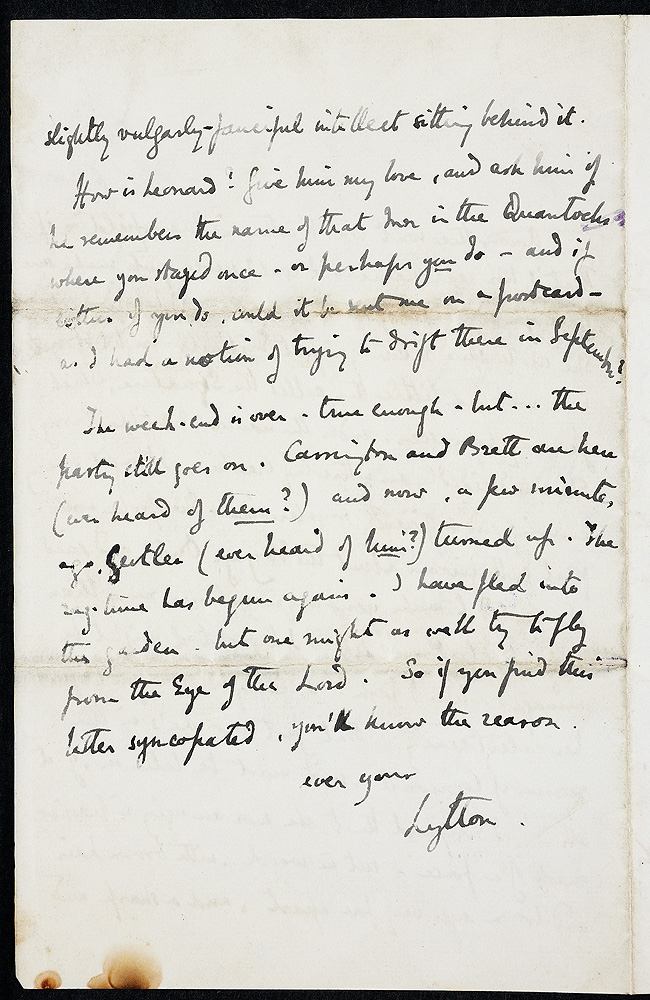 slightly vulgarly-fanciful intellect sitting behind it.
How is Leonard? Give him my love, and ask him if
he remembers the name of that Inn in the Quantocks
where you stayed once - or perhaps you do - and if
either of you do, could it be sent me on a postcard -
as I had a notion of trying to drift there in September?
The week-end is over - true enough - but... the
party still goes on. Carrington and Brett are here
(ever heard of them?) and now, a few minutes,
ago, Gertler (ever heard of him?) turned up. The
rag-time has begun again. I have fled into
the garden - but one might as well try to fly
from the Eye of the Lord. So if you find this
letter syncopated, you'll know the reason.
ever your
Lytton.